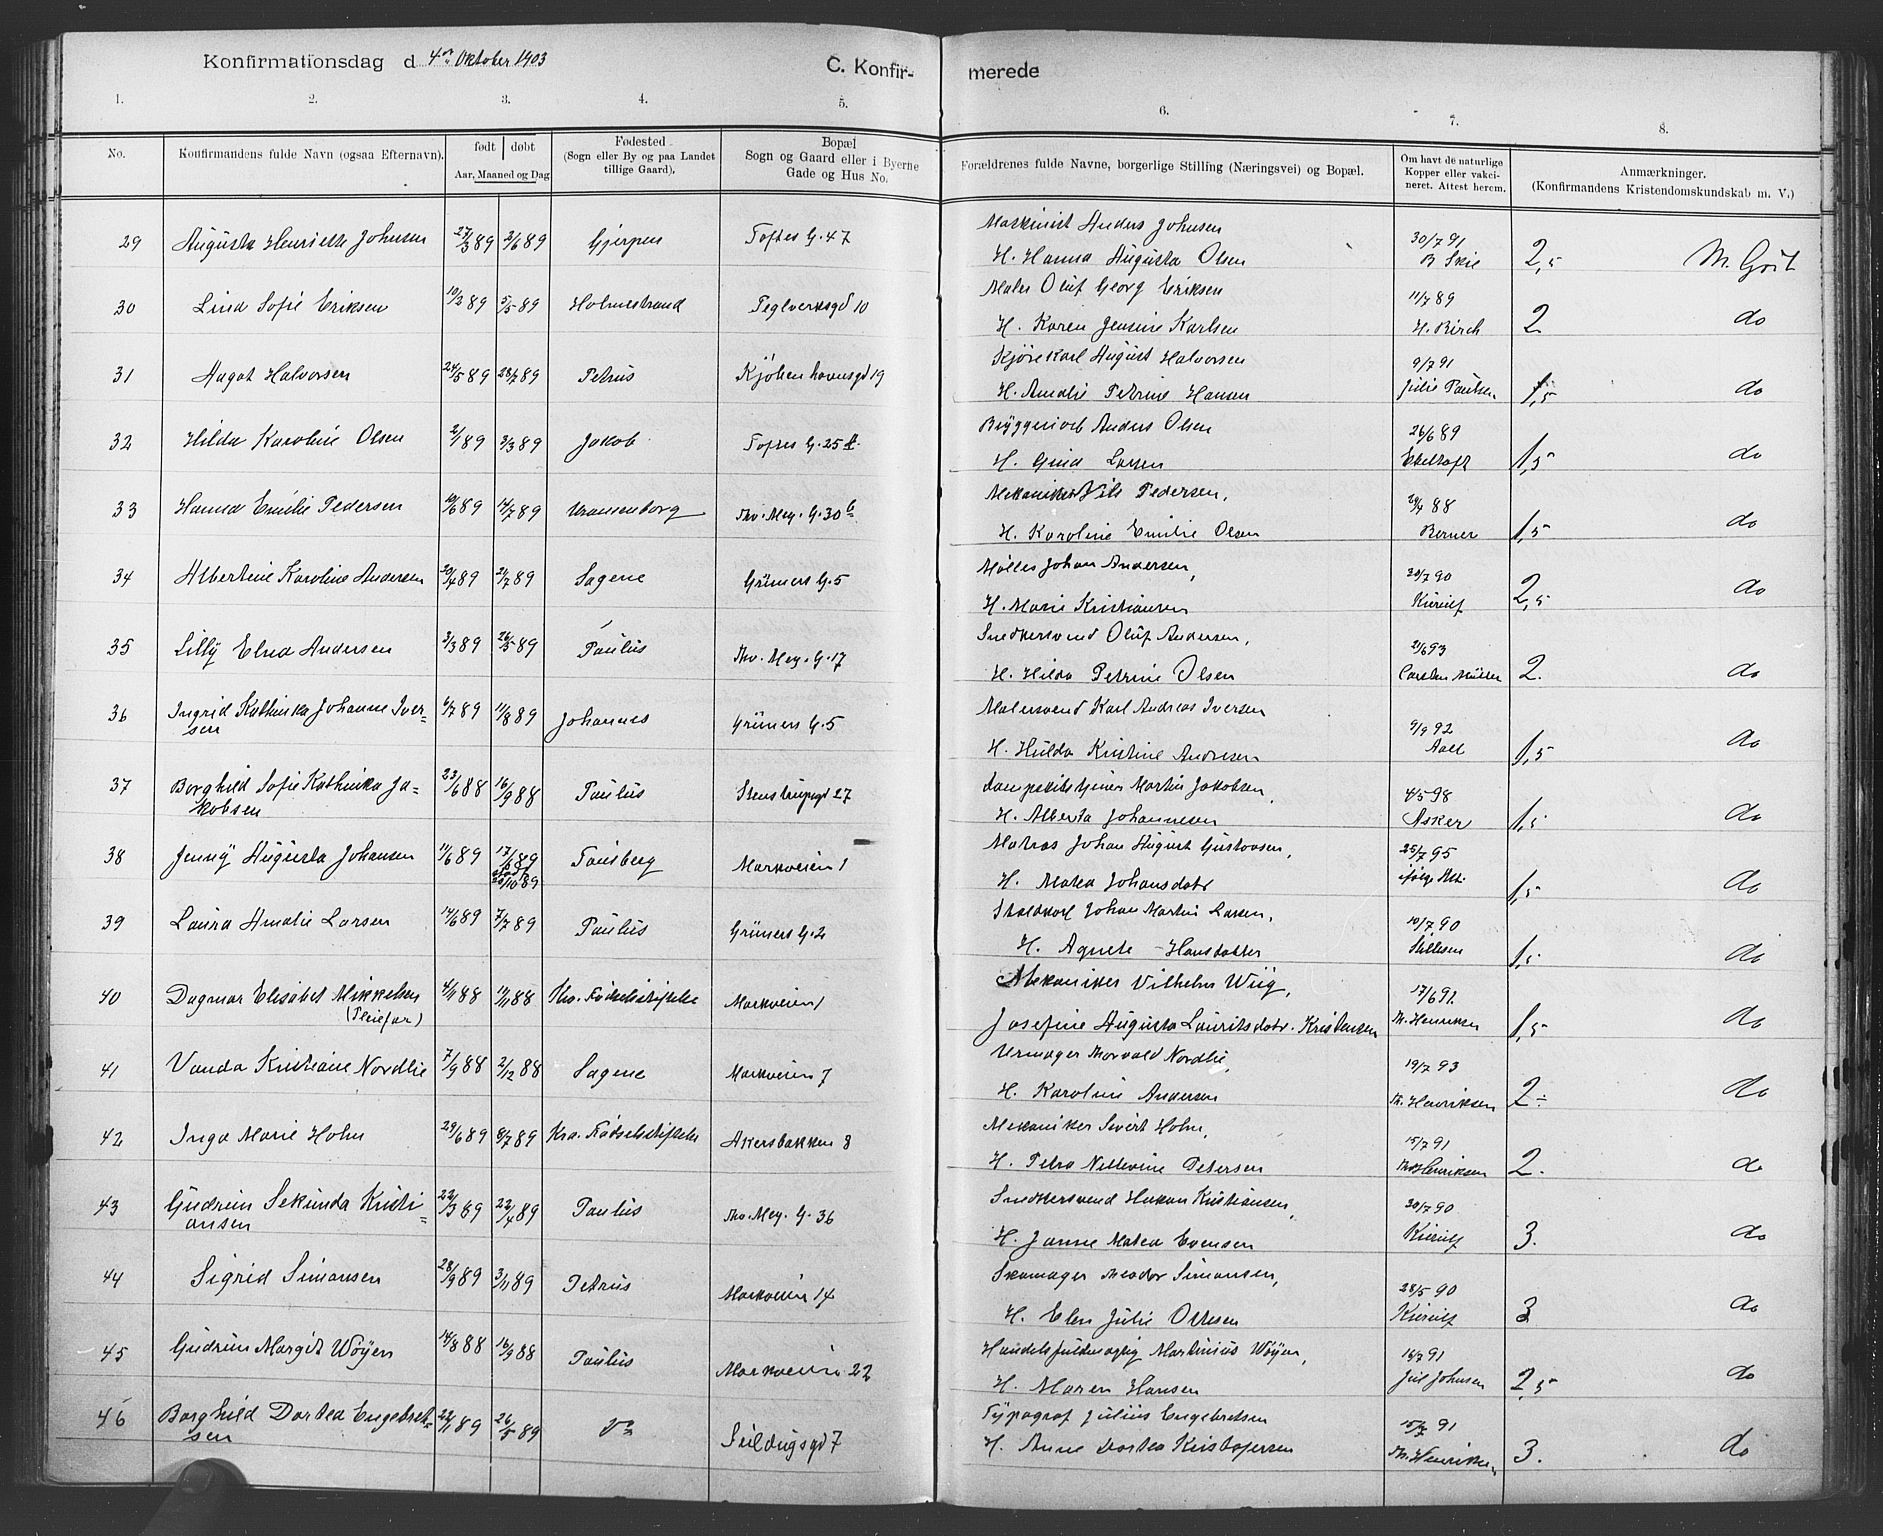 Konfirmationsdag d 4de Oktober 1903
C. Konfir- merede
1. 2. 3. 4. 5. 6. 7. 8.
No.
Konfirmandens fulde Navn (ogsaa Efternavn).
født døbt
Aar, Maaned og Dag
Fødested
(Sogn eller By og paa Landet
tillige Gaard).
Bopæl
Sogn og Gaard eller i Byerne
Gade og Hus No.
Forældrenes fulde Navne, borgerlige Stilling (Næringsvei) og Bopæl.
Om havt de naturlige
Kopper eller vakci-
neret. Attest herom.
Anmærkninger.
(Konfirmandens Kristendomskundskab m. V.)
29 Augusta Henriette Johnsen 27/3 89 2/6 89 Gjerpen Toftes G. 47 Maskinist Anders Johnsen 30/7 91
H. Hanna Augusta Olsen B Skie 2,5 M. Godt
30 Lina Sofie Eriksen 10/3 89 5/5 89 Holmestrand Teglverksgd 10 Maler Oluf Georg Eriksen 11/7 89
H. Karen Jensine Karlsen H. Birch 2 do
31 Aagot Halvorsen 24/5 89 28/7 89 Petrus Kjøbenhavnsgd 19 Kjørekarl August Halvorsen 9/7 91
H. Amalie Petrine Hansen Julie Paulsen 1,5 do
32 Hilda Karoline Olsen 2/1 89 3/3 89 Jakob Toftes G. 25 Bryggeriarb Anders Olsen 26/6 89
H. Gina Larsen 1,5 do
33 Hanna Emilie Pedersen 10/6 89 14/7 89 Uranienborg Thv. Mey. G. 30 b Mekaniker Nils Pedersen, 88
H. Karoline Emilie Olsen Berner 1,5 do
34 Albertine Karoline Andersen 20/4 89 21/7 89 Sagene Grüners G. 5 Møller Johan Andersen, 30/7 90
H. Marie Kristiansen Kierulf 2,5 do
35 Lilly Elna Andersen 3/3 89 26/5 89 Paulus Thv. Mey. G. 17 Snedkersvend Oluf Andersen, 21/6 93
H. Hilda Petrine Olsen Carsten Müller 2. do
36 Ingrid Kathinka Johanne Iver- 6/7 89 11/8 89 Johannes Grüners G. 5 Malersvend Karl Andreas Iversen 9/9 92
sen H. Hulda Kristine Andersen Aall 1,5 do
37 Borghild Sofie Kathinka Ja= 23/6 88 16/9 88 Paulus Stenstrupsgd 27 Martin Jakobsen, 4/5 98
kobsen H. Alberta Johannesen Asker 1,5 do
38 Jenny Augusta Johansen 11/6 89 17/6 89 Tønsberg Markveien 1 Matros Johan August Gustavsen, 25/7 95
20/10 89 H. Matea Johansdatr ifølge Att. 1,5 do
39 Laura Amalie Larsen 14/6 89 7/7 89 Paulus Grüners G. 2 Staldkarl Johan Martin Larsen, 10/7 90
H. Agnete Hansdatter 1,5 do
40 Dagmar Elisabet Mikkelsen 4/11 88 88 Kra. Fødselsstiftelse Markveien 1 Mekaniker Vilhelm Wiig, 17/6 92
(Pleiefar) Josefine Augusta Lauritsdatr. Kristensen Th. Henriksen 1,5 do
41 Vanda Kristiane Nordlie 7/9 88 2/12 88 Sagene Markveien 7 Urmager Thorvald Nordlie, 19/7 93
H. Karoline Andersen Th. Henriksen 2 do
42 Inga Marie Holm 29/6 89 8/7 89 Kra. Fødselsstiftelse Akersbakken 8 Mekaniker Sivert Holm, 15/7 91
H. Petra Nillevine Petersen Th Henriksen 2. do
43 Gudrun Sekunda Kristi= 22/3 89 22/4 89 Paulus Thv. Mey. G. 36 Snedkersvend Hakon Kristiansen, 30/7 90
ansen H. Janne Matea Evensen Kierulf 3. do
44 Sigrid Simonsen 28/9 89 3/11 89 Petrus Markveien 14 Skomager Theodor Simonsen, 28/5 90
H. Elen Julie Ottesen Kierulf 3 do
45 Gudrun Margit Wøyen 14/8 88 16/9 88 Paulus Markveien 22 Handelsfuldmægtig Martinius Wøyen, 16/7 91
H. Maren Hansen Jul Johnsen 2,5 do
46 Borghild Dortea Engebret- 22/1 89 26/5 89 Seildugsgd 7 Typograf Julius Engebretsen 15/7 91
sen H. Anne Dortea Kristofersen Th. Henriksen 3. do